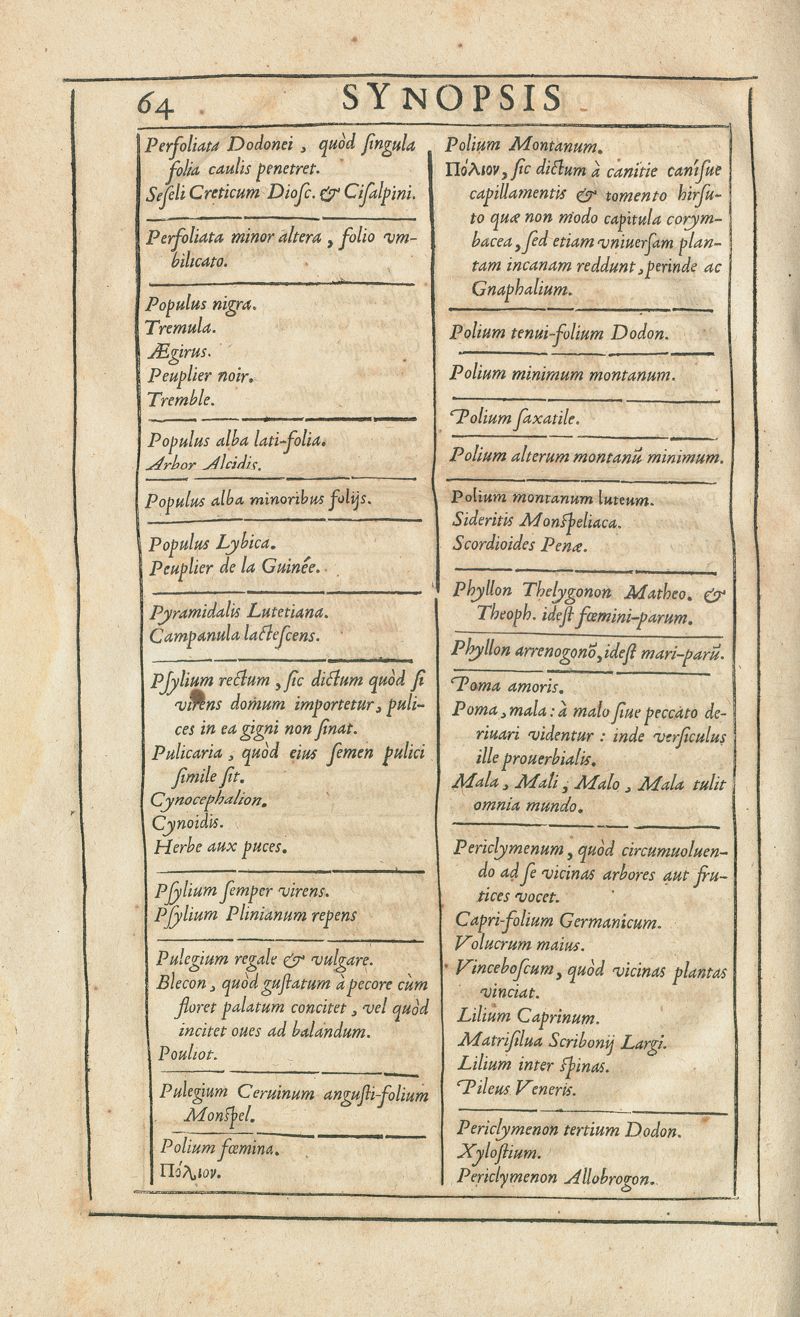 64
SYNOPSIS
Perfoliata Dodonei , quòd ſingula
folia caulis penetret.
Seſeli Creticum Dioſc. & Ciſalpini.
Perfoliata minor altera , folio vm-
bilicato.
Populus nigra.
Tremula.
Ægirus.
Peuplier noir.
Tremble.
Populus alba lati-folia.
Arbor Alcidis.
Populus alba minoribus folijs.
Populus Lybica.
Peuplier de la Guinée.
Pyramidalis Lutetiana.
Campanula lacteſcens.
Pſylium rectum , ſic dictum quòd ſi
virens domum importetur, puli-
ces in ea gigni non ſinat.
Pulicaria , quòd eius ſemen pulici
ſimile ſit.
Cynocephalion.
Cynoidis.
Herbe aux puces.
Pſylium ſemper virens.
Pſylium Plinianum repens
Pulegium regale & vulgare.
Blecon , quòd guſtatum à pecore cùm
floret palatum concitet , vel quòd
incitet oues ad balandum.
Pouliot.
Pulegium Ceruinum anguſti-folium
Monſpel.
Polium fœmina.
Πόλιον.
Polium Montanum.
Πόλιον, ſic dictum à canitie caniſue
capillamentis & tomento hirſu-
to quæ non modo capitula corym-
bacea , ſed etiam vniuerſam plan-
tam incanam reddunt , perinde ac
Gnaphalium.
Polium tenui-folium Dodon.
Polium minimum montanum.
Polium ſaxatile.
Polium alterum montanū minimum.
Polium montanum luteum.
Sideritis Monſpeliaca.
Scordioides Penæ.
Phyllon Thelygonon Matheo. &
Theoph. ideſt fœmini-parum.
Phyllon arrenogonō, ideſt mari-parū.
Poma amoris.
Poma , mala : à malo ſiue peccato de-
riuari videntur : inde verſiculus
ille prouerbialis.
Mala , Mali , Malo , Mala tulit
omnia mundo.
Periclymenum , quòd circumuoluen-
do ad ſe vicinas arbores aut fru-
tices vocet.
Capri-folium Germanicum.
Volucrum maius.
Vinceboſcum, quòd vicinas plantas
vinciat.
Lilium Caprinum.
Matriſilua Scribonij Largi.
Lilium inter ſpinas.
Pileus Veneris.
Periclymenon tertium Dodon.
Xyloſtium.
Periclymenon Allobrogon.